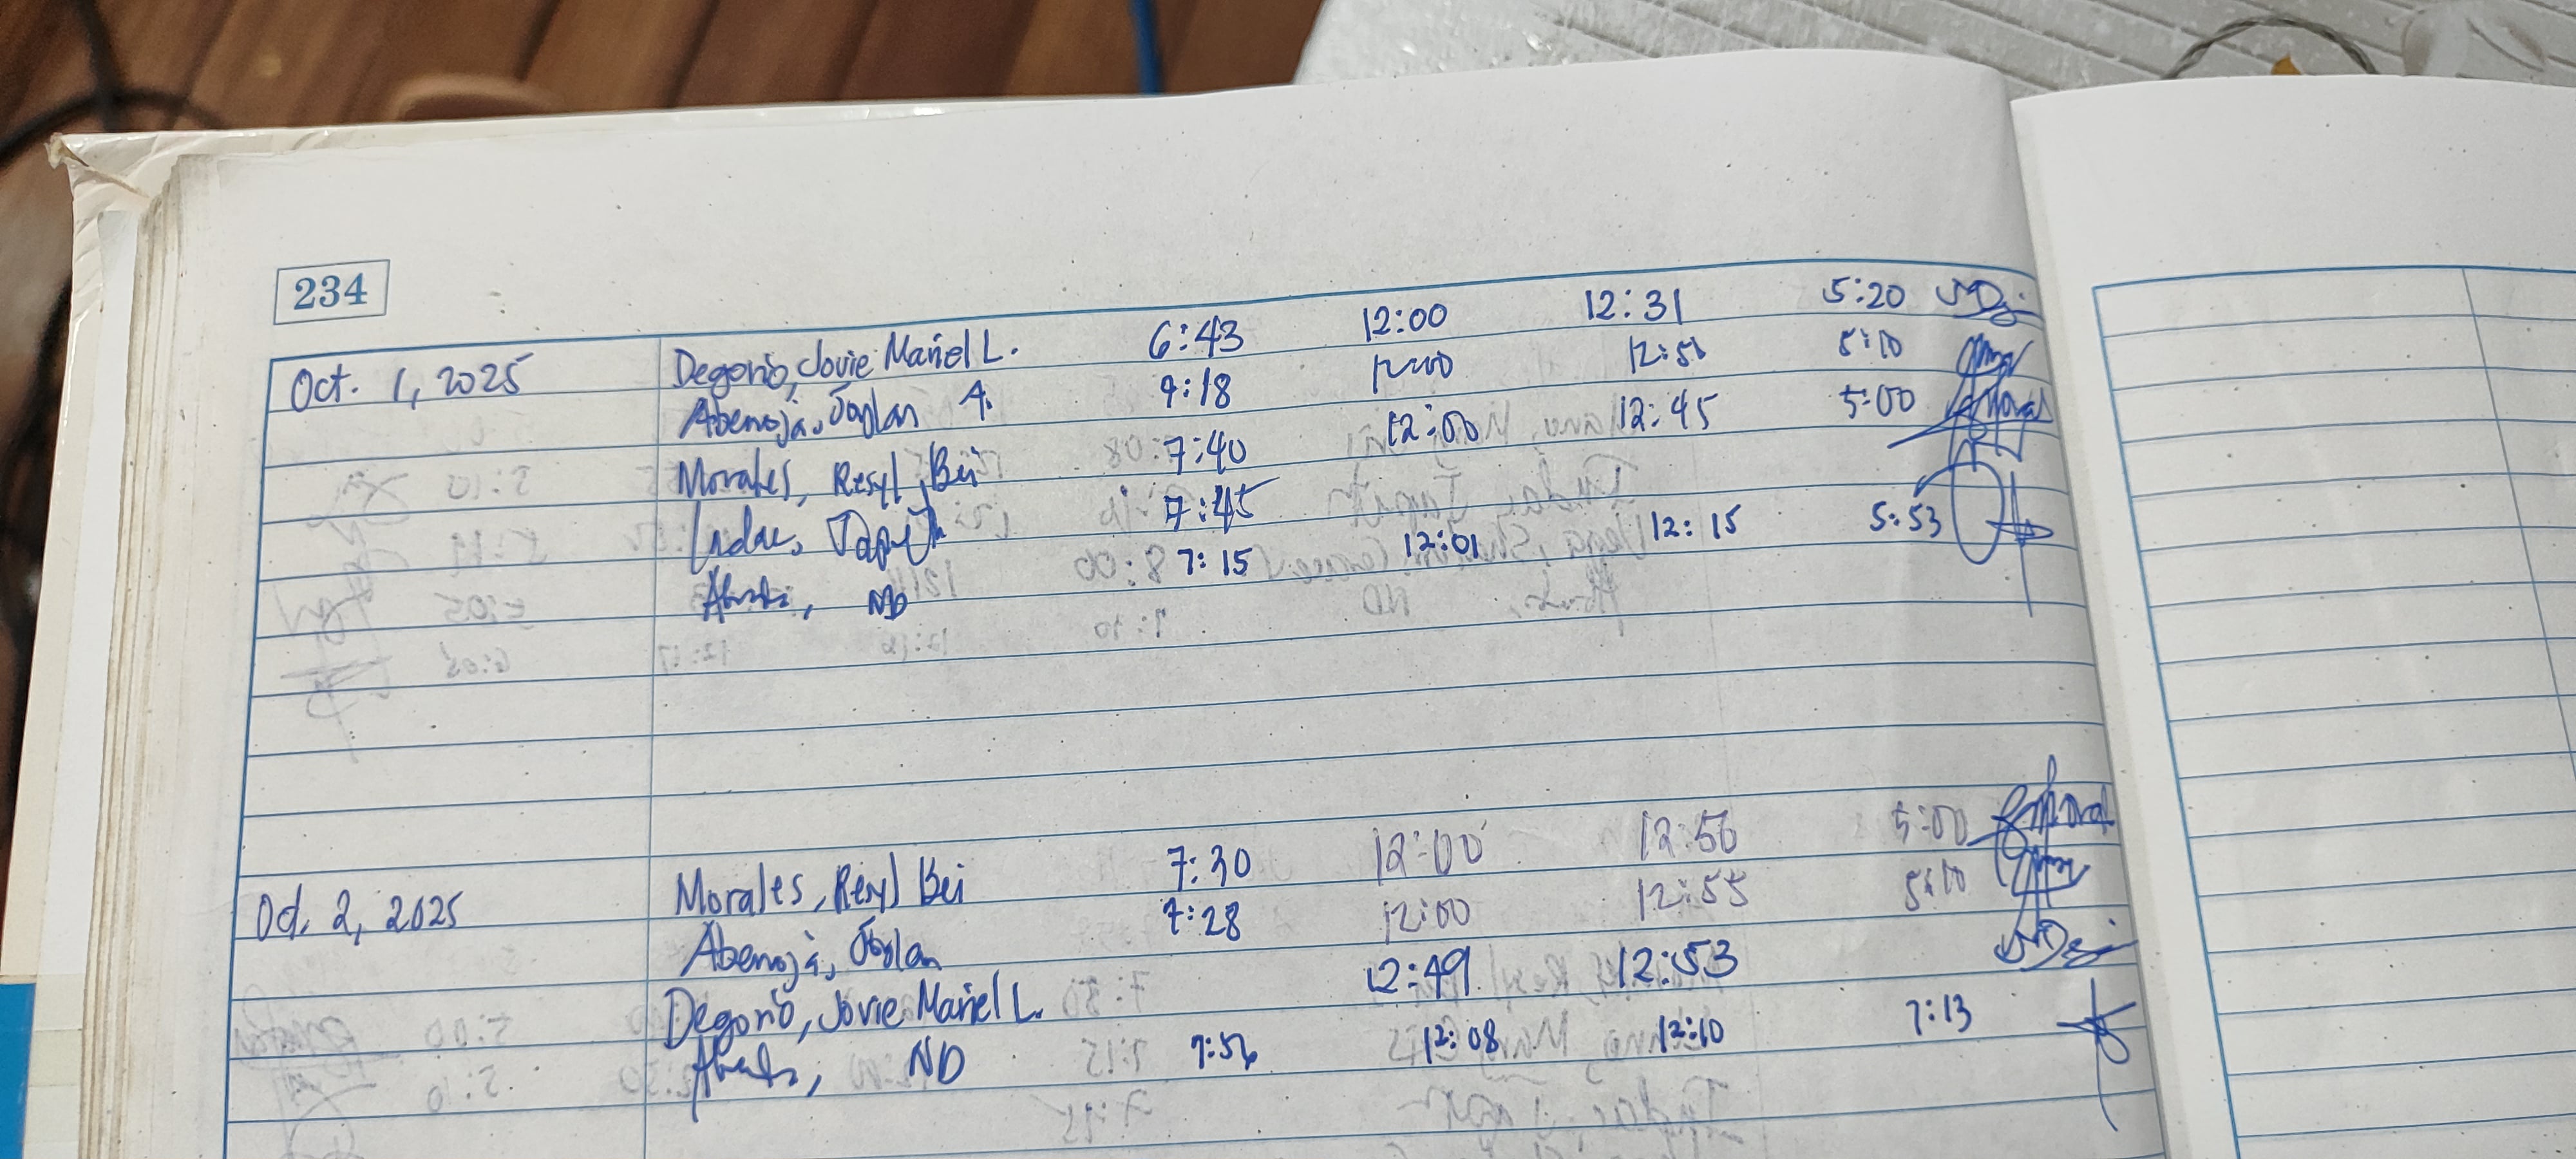 234
Oct. 1, 2025 Degorio, Jovie Mariel L. 6:43 12:00 12:31 5:20
Abenoja, Joylan A. 7:18 12:00 12:51 5:10
Morales, Resyl Bei 7:40 12:00 12:45 5:00
Japeth 7:45
ND 7:15 12:01 12:15 5:53
Oct. 2, 2025 Morales, Resyl Bei 7:30 12:00 12:50 5:00
Abenoja, Joylan 7:28 12:00 12:55 5:10
Degorio, Jovie Mariel L. 12:49 12:53
ND 7:56 12:08 12:10 7:13